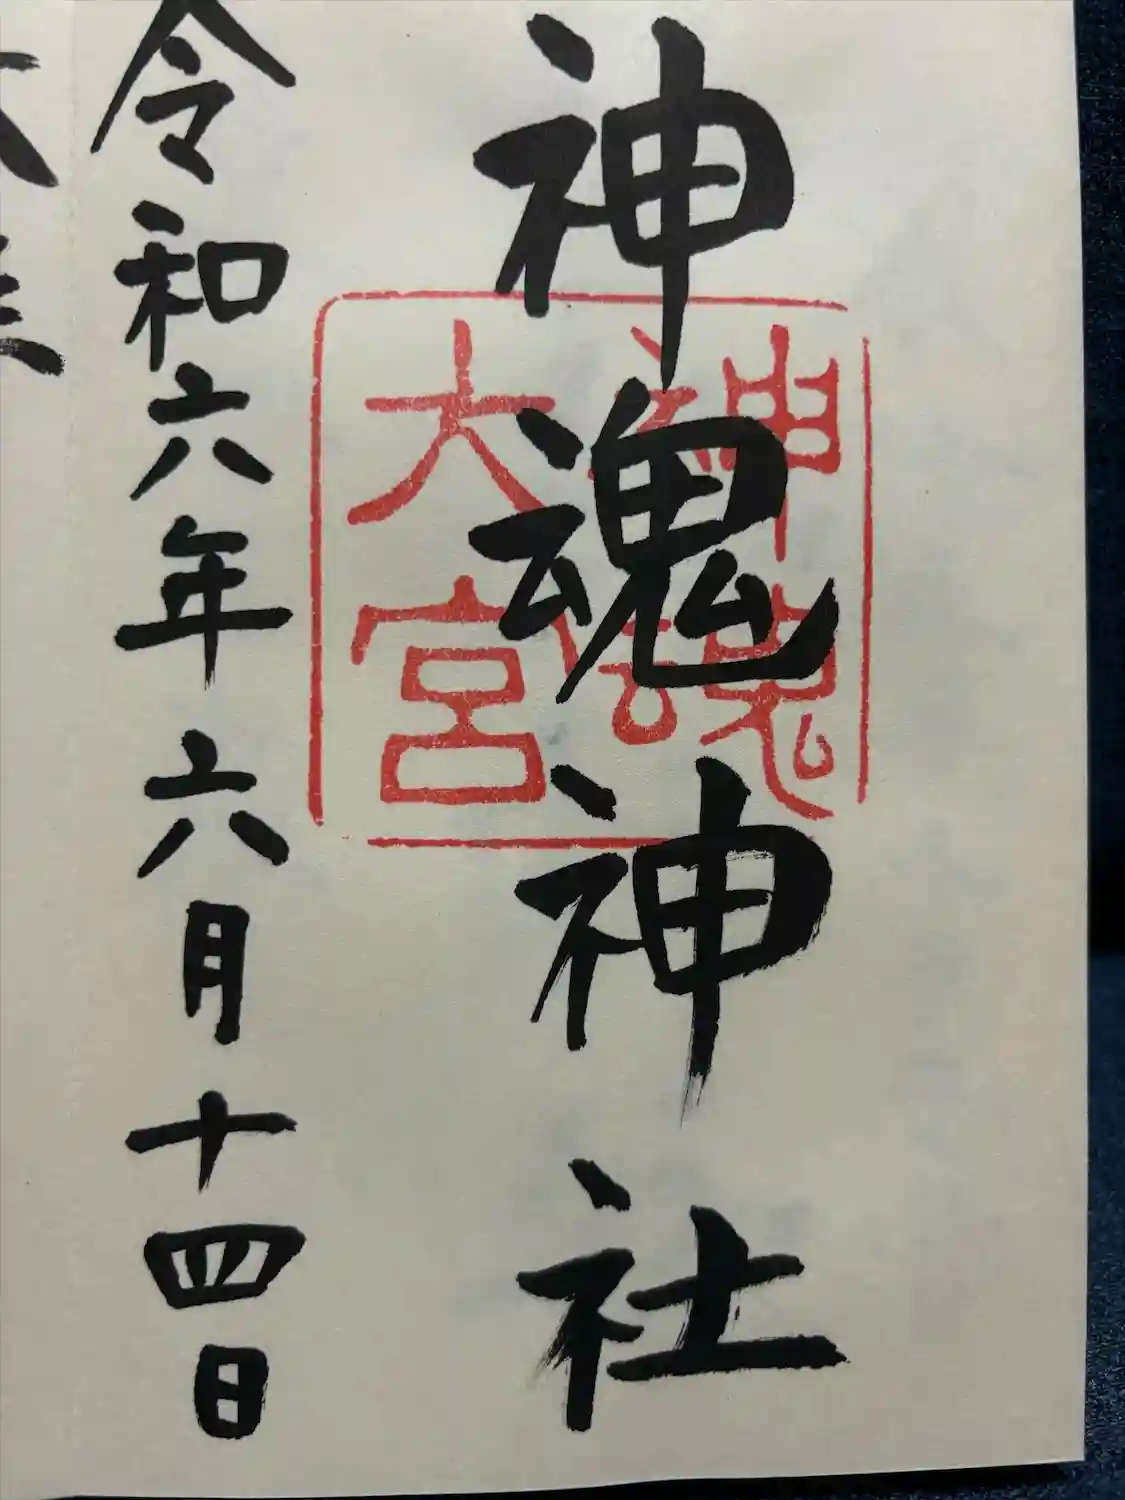 神魂神社
神魂
大宮
令和六年六月十四日